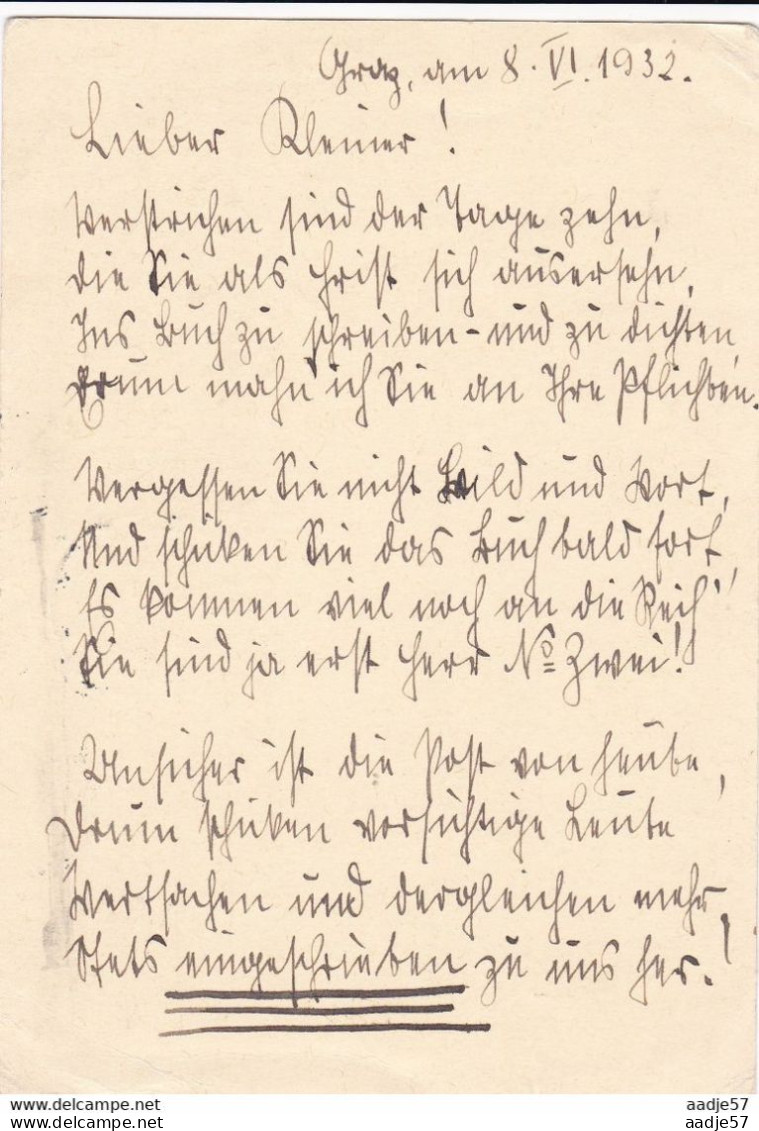 Graz, am 8. VI. 1932.
Lieber Kleiner!
Verstrichen sind der Tage zehn,
die Sie als Frist sich ausersehn,
Ins Buch zu schreiben - und zu dichten,
Drum mahn' ich Sie an Ihre Pflichten.
Vergessen Sie nicht Bild und Wort,
Und schicken Sie das Buch bald fort,
Es kommen viel noch an die Reih'
Sie sind ja erst Herr No Zwei!
Unsicher ist die Post von heute,
Drum schicken vorsichtige Leute
Wertsachen und dergleichen mehr,
Stets eingeschrieben zu uns her.!
aadje57
aadje57